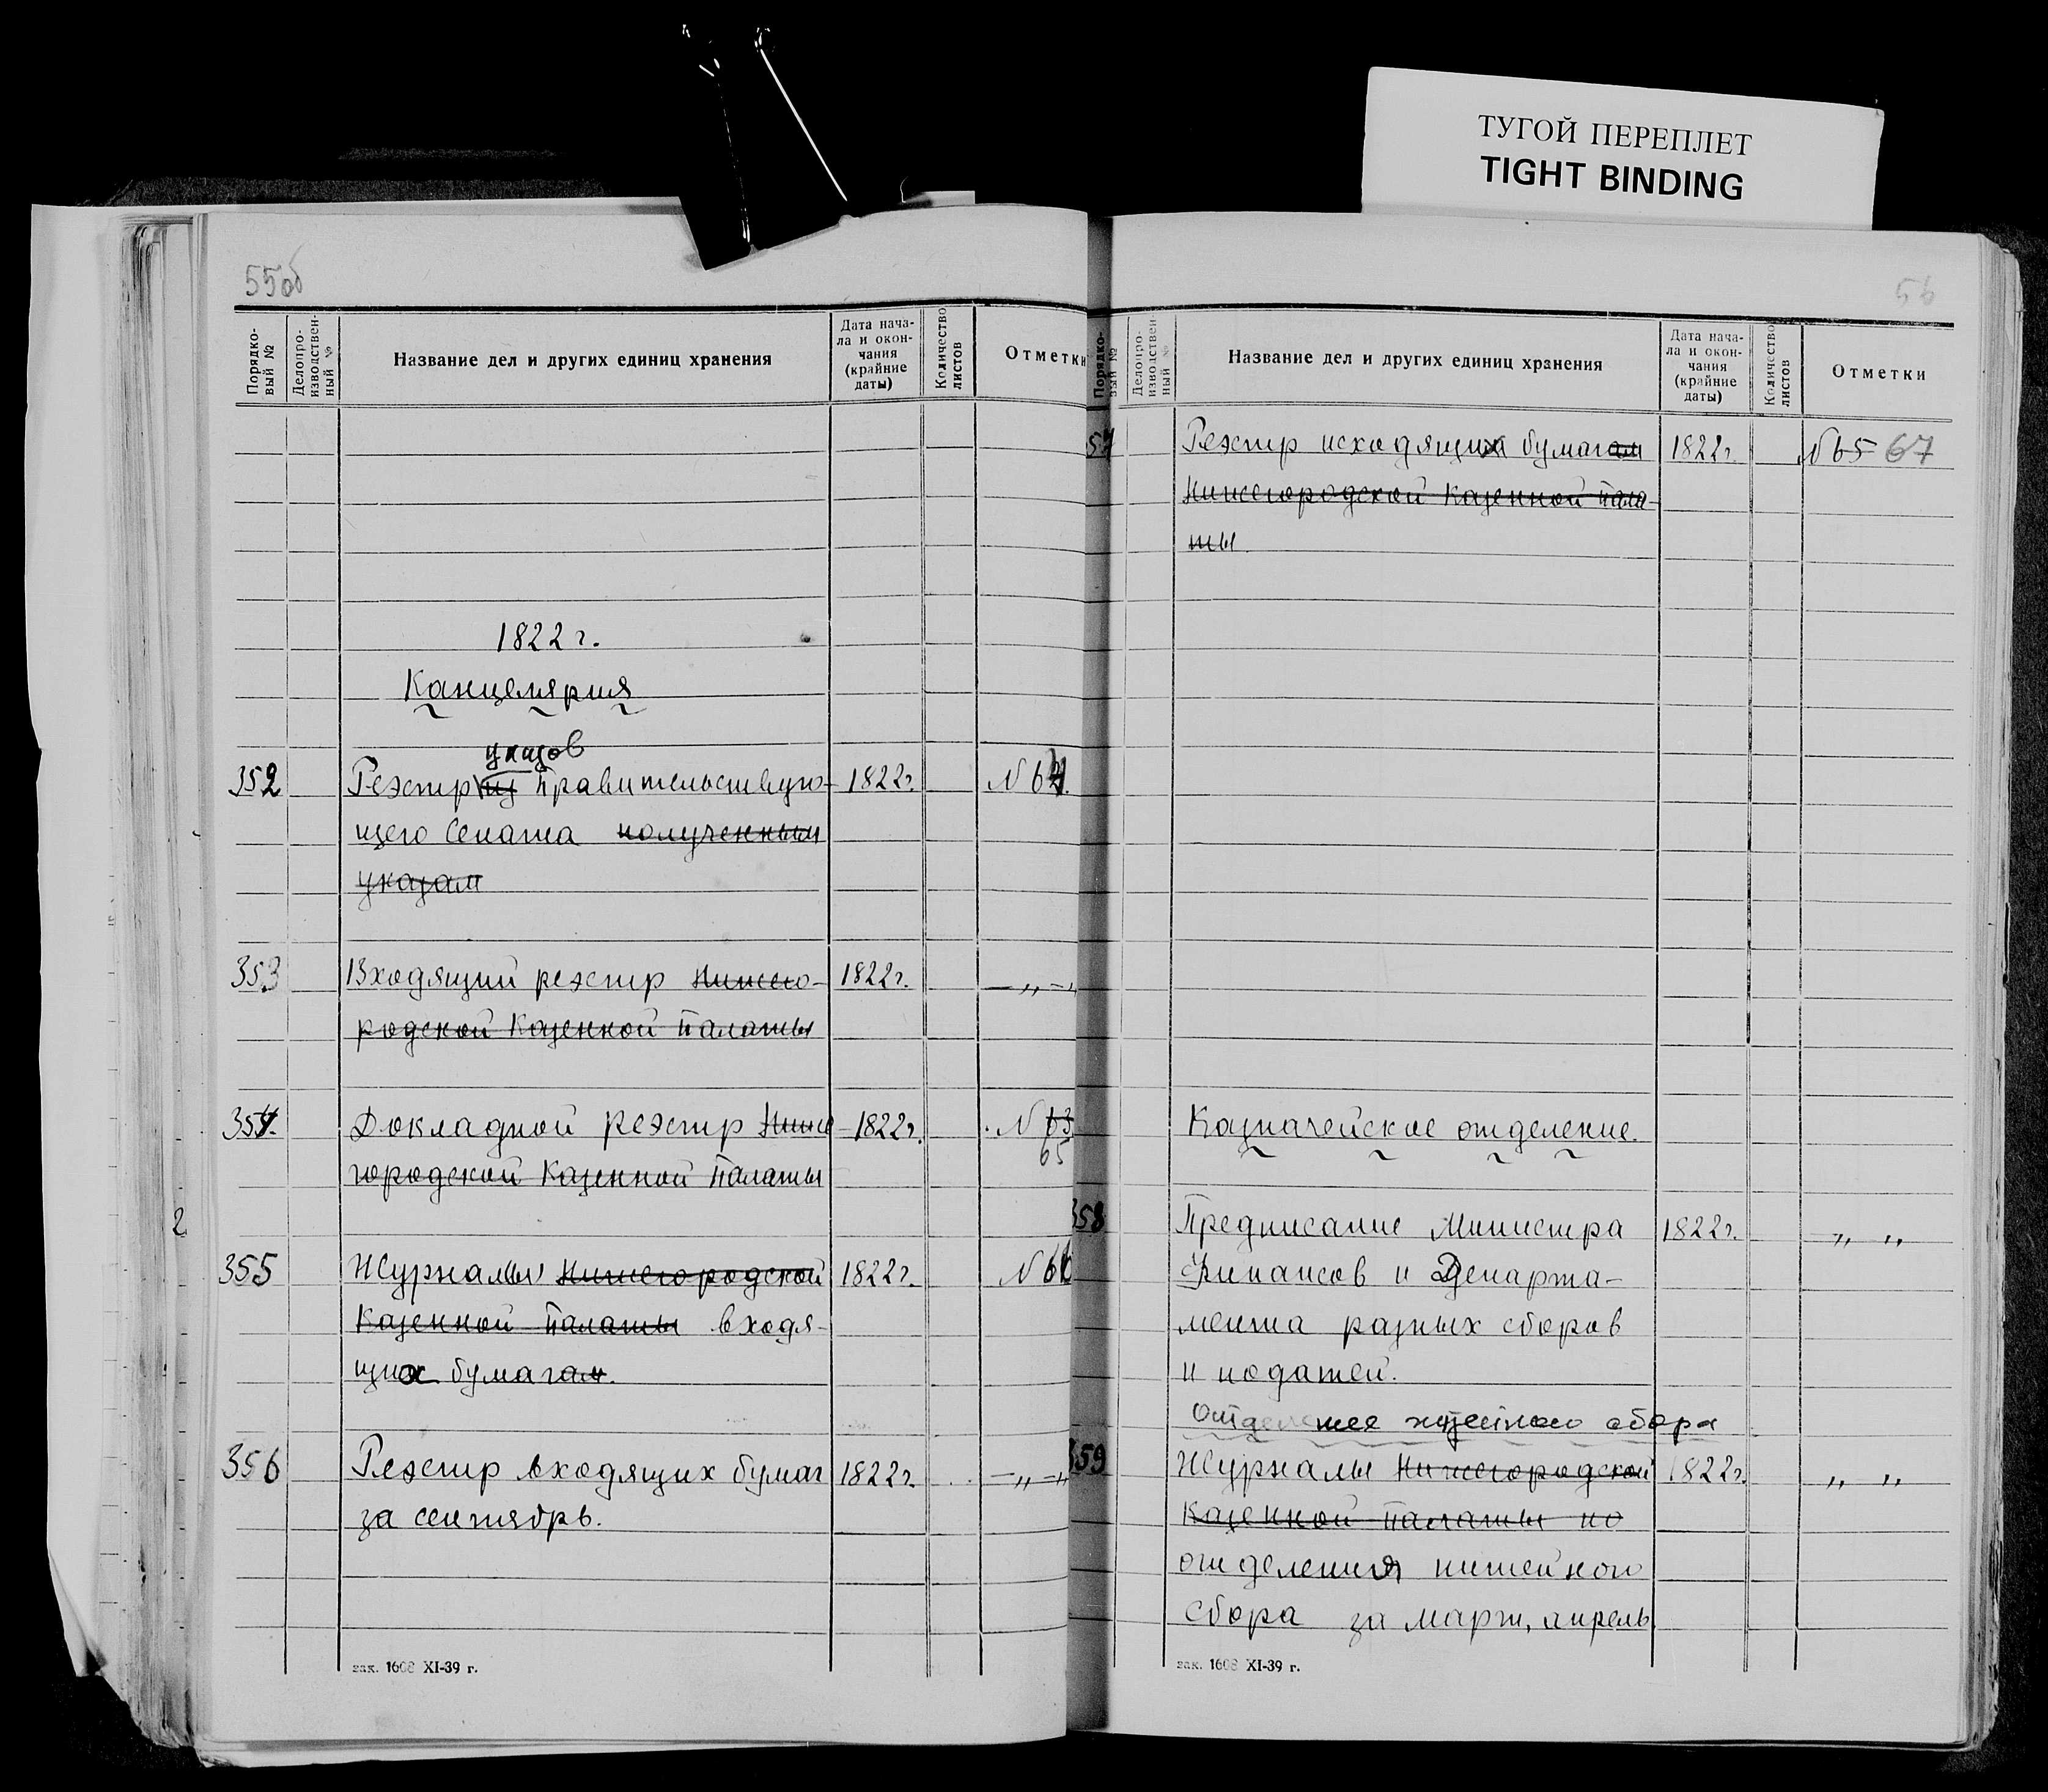 ТУГОЙ ПЕРЕПЛЕТ
TIGHT BINDING
55об
Порядко-
вый №
Делопро-
изводствен-
ный №
Название дел и других единиц хранения
Дата нача-
ла и окон-
чания
(крайние
даты)
Количество
листов
Отметки
1822 г.
Канцелярия
указов
352 Реэстр из Правительствую- 1822г. №64.
щего Сената полученным
указам
353 Входящий реэстр Нижего- 1822г. — „ —
родской Казенной Палаты
354. Докладной реэстр Ниже- 1822г. №63
65
городской Казенной Палаты
2
355 Журналы Нижегородской 1822г. №66
Казенной Палаты входя-
щих бумагам.
356 Реэстр входящих бумаг 1822г. — „ — „
за сентябрь.
зак. 1608 XI-39 г.
56
Порядко-
вый №
Делопро-
изводствен-
ный №
Название дел и других единиц хранения
Дата нача-
ла и окон-
чания
(крайние
даты)
Количество
листов
Отметки
57 Реэстр исходящих бумагам 1822г. №65 67
Нижегородской Казенной Пала-
ты.
Казначейское отделение.
358 Предписание Министра 1822г. „ „
Финансов и Департа-
мента разных сборов
и податей.
Отделение питейного сбора
359 Журналы Нижегородской 1822г. „ „
Казенной Палаты по
отделения питейного
сбора за март, апрель
зак. 1608 XI-39 г.